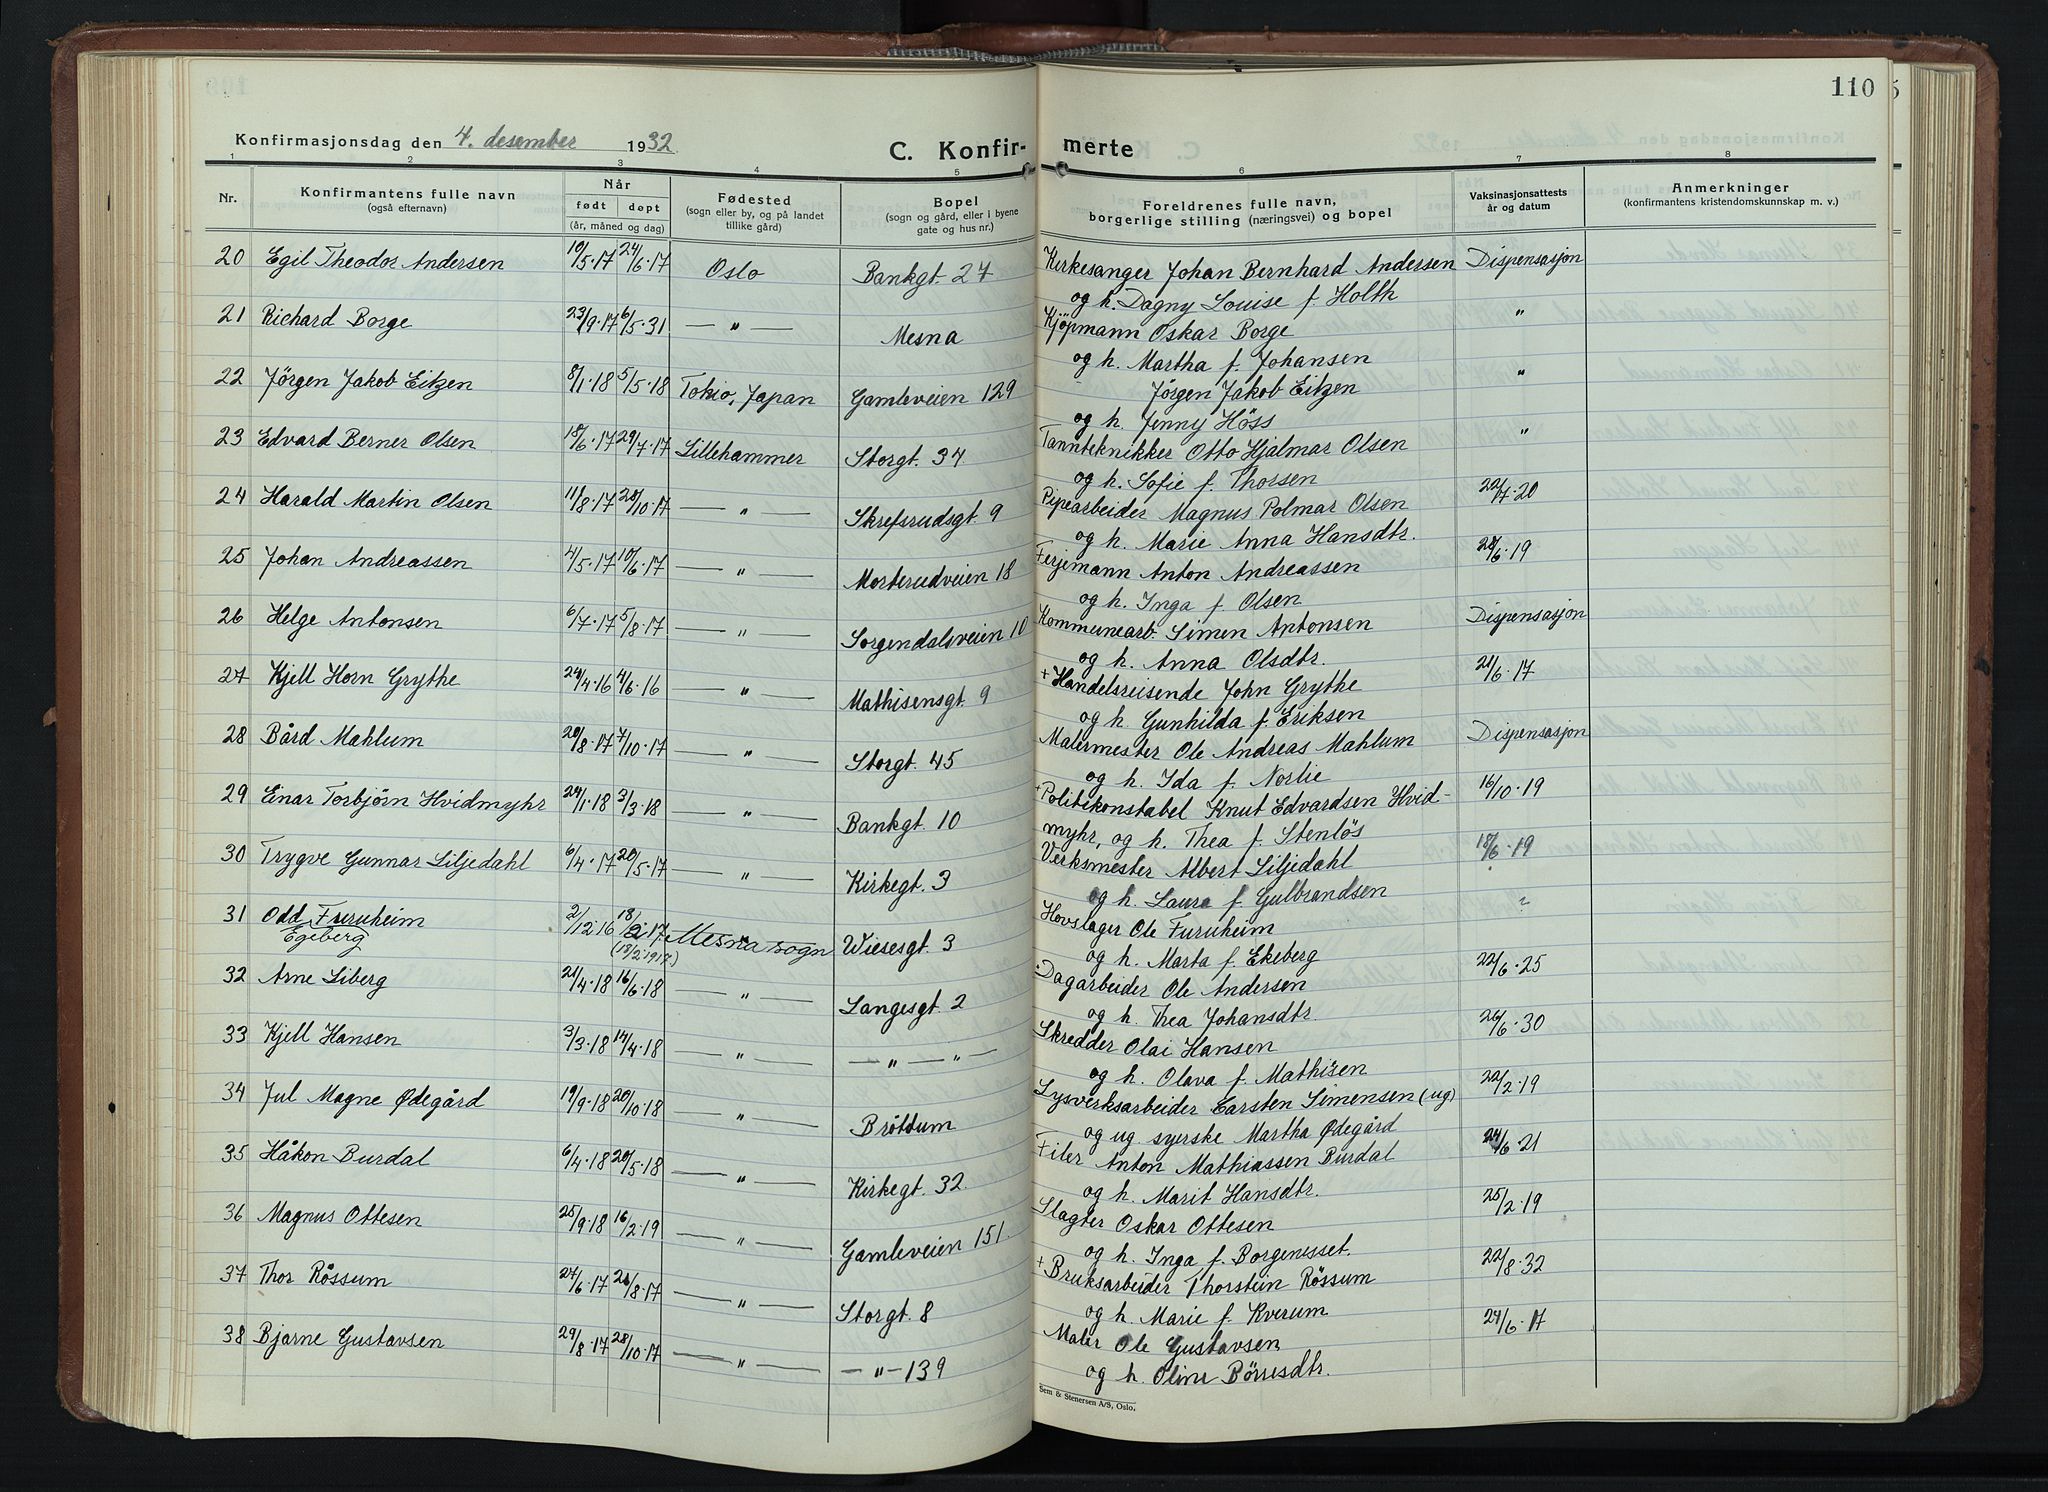 110
Konfirmasjonsdag den 4. desember 1932
C. Konfirmerte
1 2 3 4 5 6 7 8
Nr. | Konfirmantens fulle navn (også efternavn) | Når født | døpt (år, måned og dag) | Fødested (sogn eller by, og på landet tillike gård) | Bopel (sogn og gård, eller i byene gate og hus nr.) | Foreldrenes fulle navn, borgerlige stilling (næringsvei) og bopel | Vaksinasjonsattests år og datum | Anmerkninger (konfirmantens kristendomskunnskap m. v.)
20 Egil Theodor Andersen 10/5·17 24/6·17 Oslo Bankgt. 27 Kirkesanger Johan Bernhard Andersen Dispensasjon
og h. Dagny Louise f. Holth
21 Richard Borge 23/9·17 6/5·31 — " — Mesna Kjöpmann Oskar Borge "
og h. Martha f. Johansen
22 Jörgen Jakob Eitzen 8/1·18 5/5·18 Tokio, Japan Gamleveien 129 Jörgen Jakob Eitzen "
og h. Jenny Höss
23 Edvard Berner Olsen 18/6·17 29/7·17 Lillehammer Storgt. 34 Tannteknikker Otto Hjalmar Olsen "
og h. Sofie f. Thorsen
24 Harald Martin Olsen 11/8·17 28/10·17 — " — Skrefsrudsgt 9 Pipearbeider Magnus Polmar Olsen 22/7·20
og h. Marie Anna Hansdtr.
25 Johan Andreassen 4/5·17 10/6·17 — " — Morterudveien 18 Ferjemann Anton Andreassen 28/6·19
og h. Inga f. Olsen
26 Helge Antonsen 6/7·17 5/8·17 — " — Sorgendalsveien 10 Kommunearb. Simen Antonsen Dispensasjon
og h. Anna Olsdtr.
27 Kjell Horn Grythe 24/4·16 4/6·16 — " — Mathisensgt. 9 + Handelsreisende John Grythe 21/6·17
og h. Gunhilda f. Eriksen
28 Bård Mahlum 20/8·17 7/10·17 — " — Storgt. 45 Malermester Ole Andreas Mahlum Dispensasjon
og h. Ida f. Norlie
29 Einar Torbjörn Hvidmyhr 24/1·18 3/3·18 — " — Bankgt. 10 + Politikonstabel Knut Edvardsen Hvid- 16/10·19
myhr, og h. Thea f. Stenlös
30 Trygve Gunnar Liljedahl 6/4·17 20/5·17 — " — Kirkegt. 3 Verksmester Albert Liljedahl 18/6·19
og h. Laura f. Gulbrandsen
31 Odd Furuheim 2/12·16 18/2·17 Mesna sogn Wiesesgt. 3 Hovslager Ole Furuheim ?
Egeberg (18/2·1917) og h. Marta f. Ekeberg
32 Arne Liberg 21/4·18 16/6·18 — " — Langesgt. 2 Dagarbeider Ole Andersen 22/6·25
og h. Thea Johansdtr.
33 Kjell Hansen 3/3·18 14/4·18 — " — — " — " — Skredder Olai Hansen 26/6·30
og h. Olava f. Mathisen
34 Jul Magne Ødegård 19/9·18 20/10·18 — " — Bröttum Lysverksarbeider Carsten Simensen (ug) 22/2·19
og ug. syerske Martha Ødegård
35 Håkon Burdal 6/4·18 20/5·18 — " — Kirkegt. 32 Filer Anton Mathiassen Burdal 24/6·21
og h. Marit Hansdtr.
36 Magnus Ottesen 25/9·18 16/2·19 — " — Gamleveien 151. Slagter Oskar Ottesen 25/2·19
og h. Inga f. Borgenisset.
37 Thor Rössum 27/6·17 /8·17 — " — Storgt. 8 + Bruksarbeider Thorstein Rössum 22/8·32
og h. Marie f. Kverum
38 Bjarne Gustavsen 29/8·17 28/10·17 — " — — " — 139 Maler Ole Gustavsen 24/6·17
og h. Oline Börresdtr.
Sem & Stenersen A/S, Oslo.